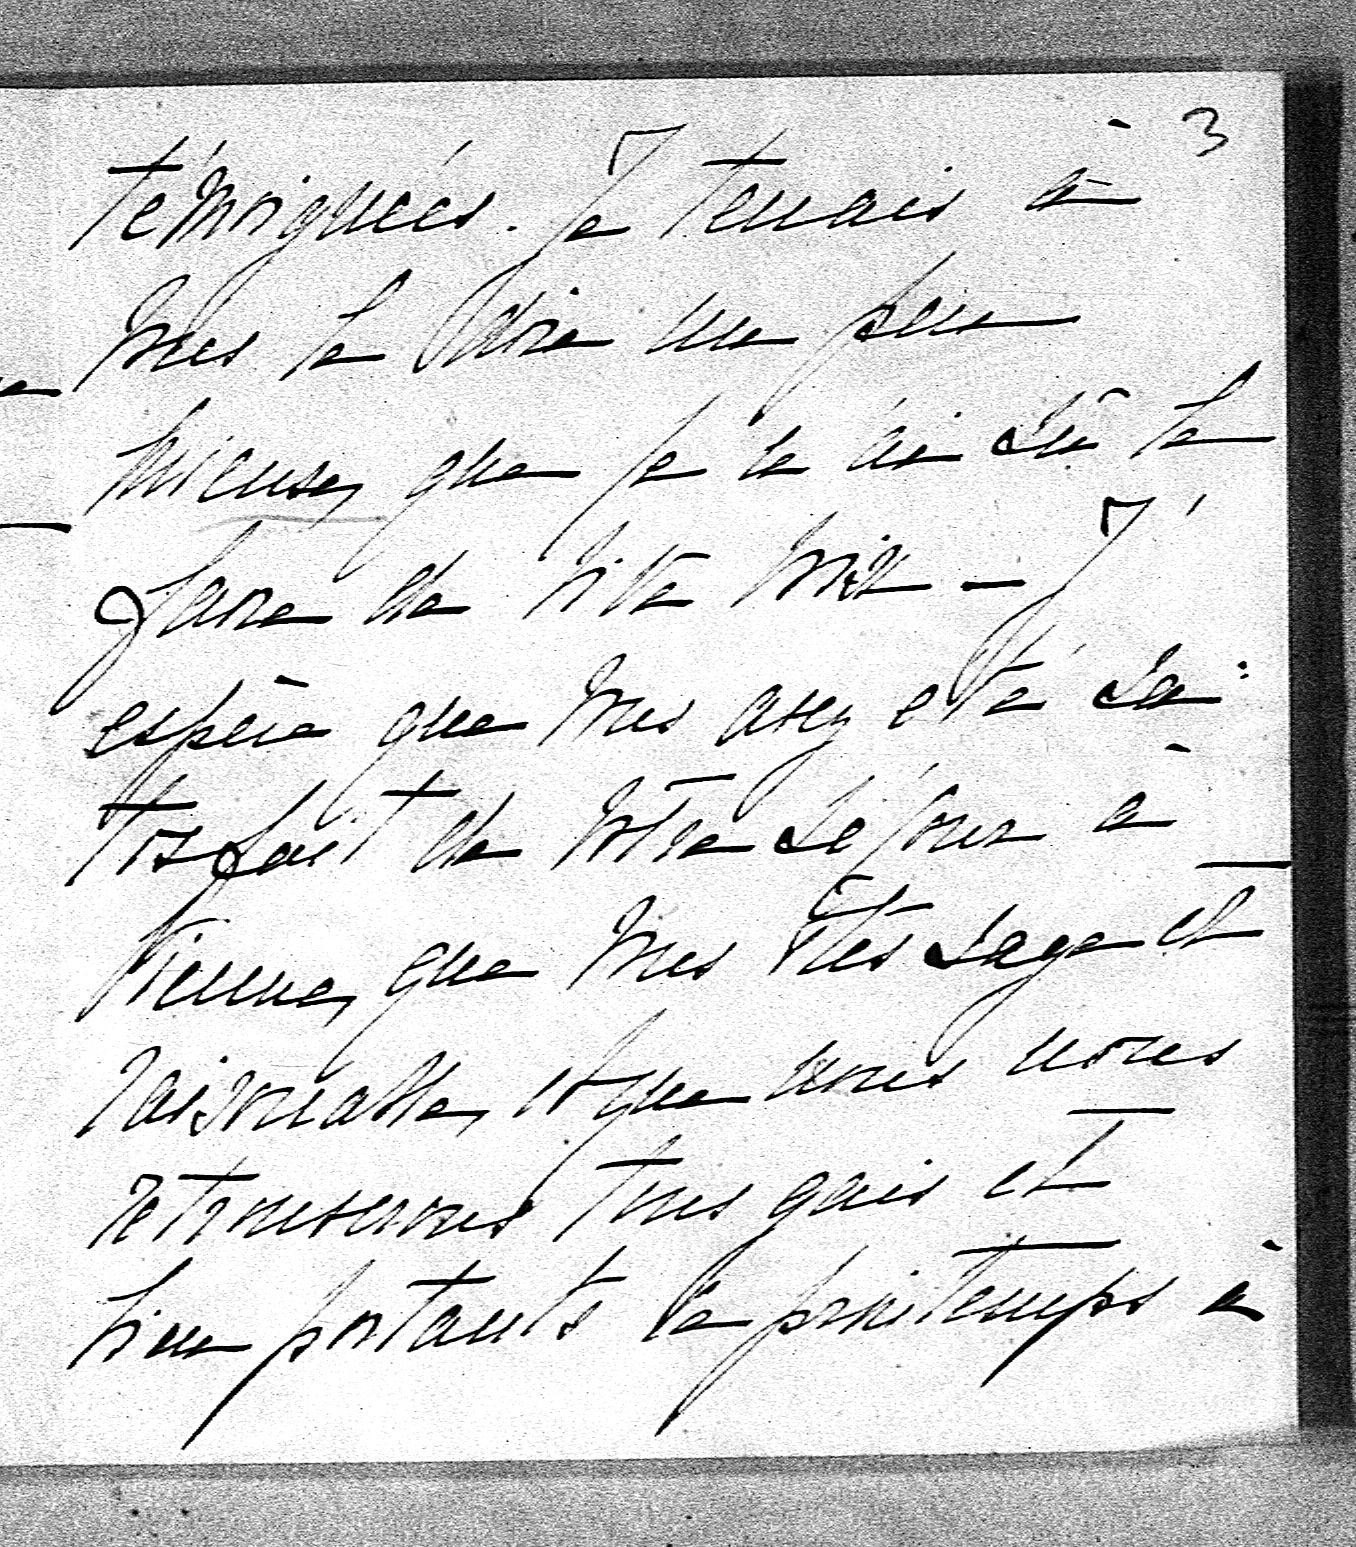 3
témoignées. Je tenais à
vous le dire un peu
mieux, que je ne ai sû le
faire de vive voix – J'
espère que vous avez été sa-
tisfait de vôtre séjour à
Vienne, que vous êtes sage et
raisonable, et que nous nous
retrouverons tous gais et
bien portants le printemps à